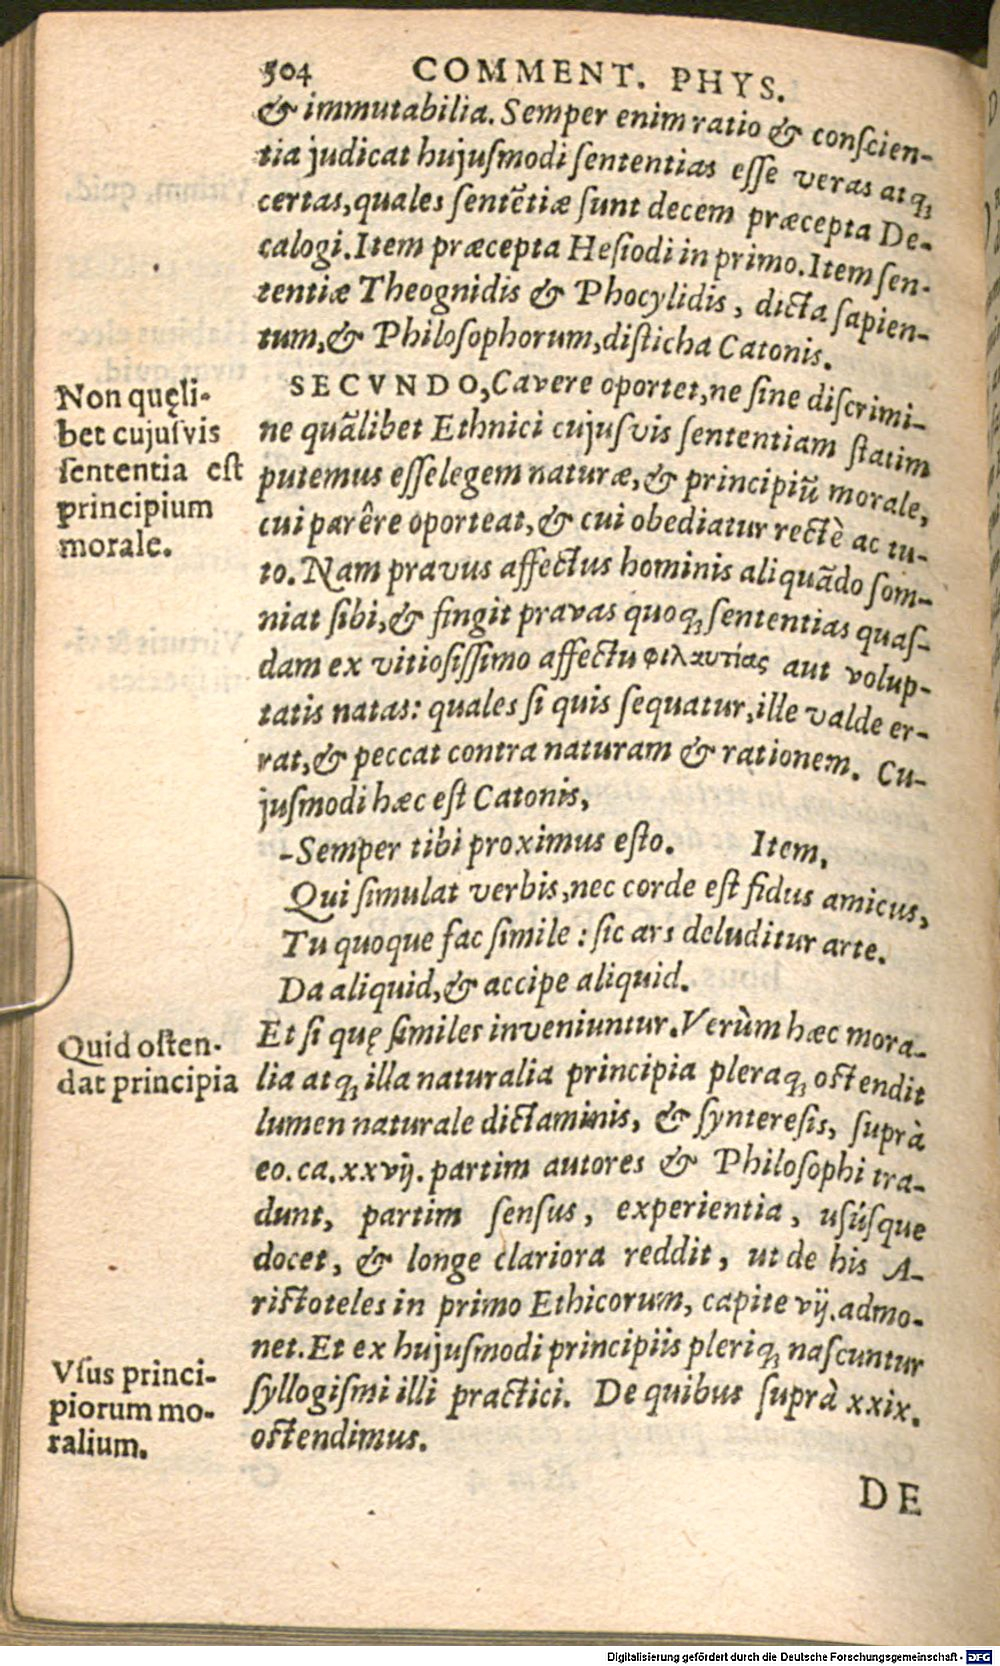 504 COMMENT. PHYS.
& immutabilia. Semper enim ratio & conscien-
tia judicat hujusmodi sententias esse veras atq;
certas, quales sentẽtiæ sunt decem præcepta De-
calogi. Item præcepta Hesiodi in primo. Item sen-
tentiæ Theognidis & Phocylidis, dicta sapien-
tum, & Philosophorum, disticha Catonis.
SECVNDO, Cavere oportet, ne sine discrimi-
ne quãlibet Ethnici cujusvis sententiam statim
putemus esse legem naturæ, & principiũ morale,
cui parêre oporteat, & cui obediatur rectè ac tu-
to. Nam pravus affectus hominis aliquãdo som-
niat sibi, & fingit pravas quoq; sententias quas-
dam ex vitiosissimo affectu φιλαυτίας aut volup-
tatis natas: quales si quis sequatur, ille valde er-
rat, & peccat contra naturam & rationem. Cu-
jusmodi hæc est Catonis,
-Semper tibi proximus esto. Item,
Qui simulat verbis, nec corde est fidus amicus,
Tu quoque fac simile: sic ars deluditur arte.
Da aliquid, & accipe aliquid.
Et si quę similes inveniuntur. Verùm hæc mora-
lia atq; illa naturalia principia pleraq; ostendit
lumen naturale dictaminis, & synteresis, suprà
eo. ca. xxvij. partim autores & Philosophi tra-
dunt, partim sensus, experientia, usúsque
docet, & longe clariora reddit, ut de his A-
ristoteles in primo Ethicorum, capite vij. admo-
net. Et ex hujusmodi principiis pleriq; nascuntur
syllogismi illi practici. De quibus suprà xxix.
ostendimus.
DE
Non quęli-
bet cujusvis
sententia est
principium
morale.
Quid osten-
dat principia
Vsus princi-
piorum mo-
ralium.
Digitalisierung gefördert durch die Deutsche Forschungsgemeinschaft - DFG